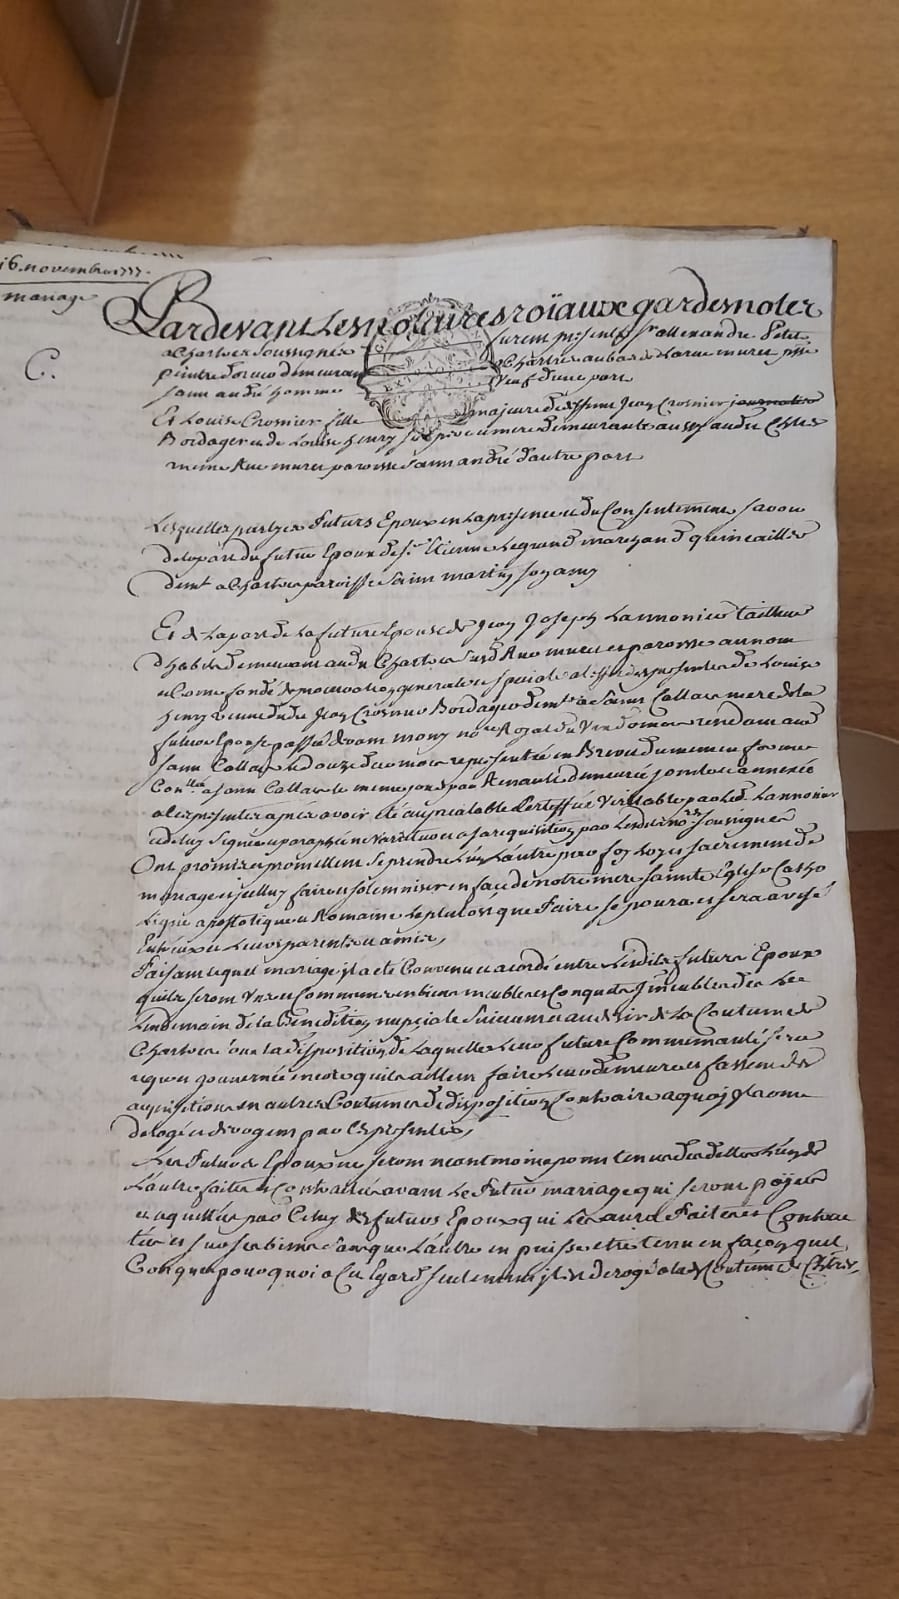 16 novembre 1777.
mariage
C.
Pardevant Les notaires roïaux gardesnotes
a Chartres Soussignés furent présents Sr allexandre Petit
peintre demeurant a Chartres au bas de La rue muret psse
saint andré homme Veuf d'une part
Et Louise Crosnier fille majeure de deffunt Jean Crosnier journalier
Bordager et de Louise henry ses père et mere demeurante aussy audit Chartres
meme Rue muret paroisse Saint andré d'autre part
Lesquelles parties Futurs Epoux en La présence et du Consentement savoir
de la part du futur Epoux de Sr Etienne Legrand marchand quincaillier
demt a Chartres paroisse Saint martin son amy
Et de La part de La future Epouse de Jean Joseph Lannonier tailleur
d'habits demeurant audit Chartres susd Rue muret et paroisse au nom
et Come fondé de procuration generale et speciale a l'effet des présentes de Louise
henry veuve dudt Jean Crosnier Bordager demte a Saint Callais mere de la
future Epouse passée devant mony nore Royal du Vendomois residant aud
Saint Callais le douze du mois représentée en Brevet duement en forme
Conllé a Saint Callais le meme jour par Renault demeurée jointe et annexée
a ces présentes après avoir été au préalable Certiffiée Véritable par led. Lannonier
et de luy Signée et paraphée ne Varietur et a sa requisition par Lesdits nores Soussignés
Ont promis et promettent se prendre L'un L'autre par foy Loy et sacrement de
mariage et icelluy faire et solemniser en face de notre mere sainte Eglise Catho
Lique apostolique et Romaine Le plutost que Faire se poura et sera avisé
Entr'eux et Leurs parents et amis,
Faisant lequel mariage il a eté Convenu et acordé entre Lesdits futurs Epoux
qu'ils seront Uns et Communs en biens meubles et Conquets Immeubles des Le
Lendemain de la Bénédiction nupciale Suivant et au desir de La Coutume de
Chartres sous la disposition de Laquelle Leur future Communauté sera
regie et gouvernée encore qu'ils aillent faire Leur demeure et fassent des
acquisitions en autres Coutumes de disposition Contraire a quoy ils ont
derogé et derogent par Ces présentes,
Les Futurs Epoux ne seront néantmoins point tenus des dettes L'un de
L'autre faites et Contractées avant Le Futur mariage qui seront payées
et aquittées par Celuy des futurs Epoux qui Les aura Faites et Contrac
tées et sur ses biens sans que L'autre en puisse etre tenu en façon quel
Conque pourquoi a Cet Egard seulement il est derogé a lad Coutume de Chartres,